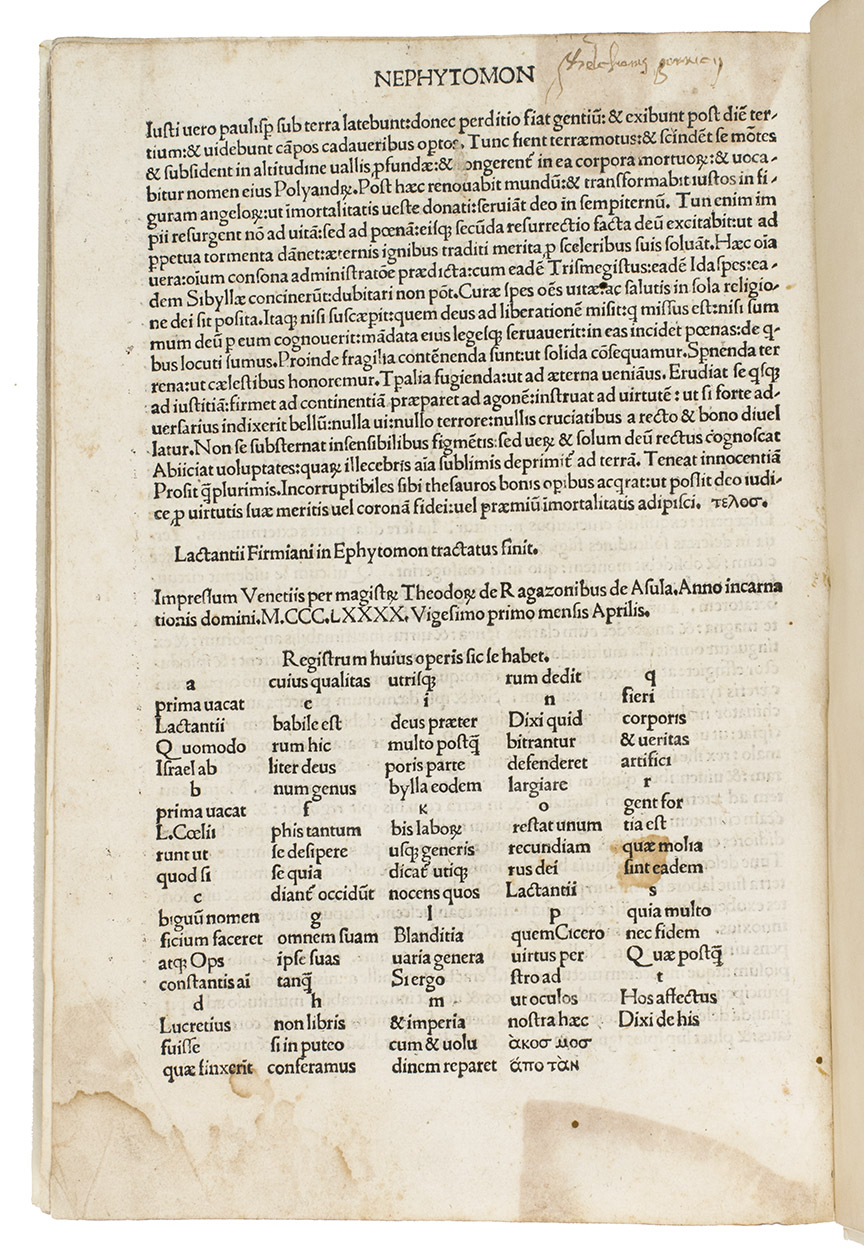 NEPHYTOMON
Iusti uero paulisp sub terra latebunt:donec perditio fiat gentiũ:& exibunt post diẽ ter-
tium:& uidebunt cãpos cadaueribus optos. Tunc fient terræmotus:& scindẽt se mõtes
& subsident in altitudine uallis,pfundæ:& ongerent̃ in ea corpora mortuoꝝ:& uoca-
bitur nomen eius Polyandꝝ.Post hæc renouabit mundũ:& transformabit iustos in fi-
guram angeloꝝ:ut ĩmortalitatis ueste donati:seruiãt deo in sempiternũ. Tun enim im
pii resurgent nõ ad uitã:sed ad pœnã:eisqꝫ secũda resurrectio facta deũ excitabit:ut ad
ppetua tormenta dãnet:æternis ignibus traditi merita,p sceleribus suis soluãt.Hæc oĩa
uera:oĩum consona administratõe prædicta:cum eadẽ Trismegistus:eadẽ Idaspes:ea-
dem Sibyllæ concinerũt:dubitari non põt.Curæ spes oẽs uitæ ac salutis in sola religio-
ne dei sit posita.Itaqꝫ nisi suscæpit:quem deus ad liberationẽ misit:q missus est:nisi sum
mum deũ p eum cognouerit:mãdata eius legesqꝫ seruauerit:in eas incidet pœnas:de q-
bus locuti sumus.Proinde fragilia contẽnenda sunt:ut solida cõsequamur.Spnenda ter
rena:ut cælestibus honoremur.Tpalia fugienda:ut ad æterna ueniãus. Erudiat se qsqꝫ
ad iustitiã:firmet ad continentiã præparet ad agonẽ:instruat ad uirtutẽ: ut si forte ad-
uersarius indixerit bellũ:nulla ui:nullo terrore:nullis cruciatibus a recto & bono diuel
latur.Non se substernat insensibilibus figmẽtis:sed ueꝝ & solum deũ rectus cognoscat
Abiiciat uoluptates:quaꝝ illecebris aĩa sublimis deprimit̃ ad terrã. Teneat innocentiã
Prosit q̃plurimis.Incorruptibiles sibi thesauros bonis opibus acqrat:ut possit deo iudi-
ce,p uirtutis suæ meritis uel coronã fidei:uel præmiũ ĩmortalitatis adipisci. τελοσ.
Lactantii Firmiani in Ephytomon tractatus finit.
Impressum Venetiis per magistꝝ Theodoꝝ de Ragazonibus de Asula.Anno incarna
tionis domini.M.CCC.LXXXX.Vigesimo primo mensis Aprilis.
Registrum huius operis sic se habet.
a
prima uacat
Lactantii
Quomodo
Israel ab
b
prima uacat
L.Cœlii
runt ut
quod si
c
biguũ nomen
ficium faceret
atqꝫ Ops
constantis ai
d
Lucretius
fuisse
quæ finxerit
cuius qualitas
e
babile est
rum hic
liter deus
num genus
f
phis tantum
se desipere
se quia
diant̃ occidũt
g
omnem suam
ipse suas
tanq̃
h
non libris
si in puteo
conferamus
utrisqꝫ
i
deus præter
multo postq̃
poris parte
bylla eodem
k
bis laboꝝ
usqꝫ generis
dicat̃ utiqꝫ
nocens quos
l
Blanditia
uaria genera
Si ergo
m
& imperia
cum & uolu
dinem reparet
rum dedit
n
Dixi quid
bitrantur
defenderet
largiare
o
restat unum
recundiam
rus dei
Lactantii
p
quem Cicero
uirtus per
stro ad
ut oculos
nostra hæc
ὰκοσ μοσ
ἄπο τὰν
q
fieri
corporis
& ueritas
artifici
r
gent for
tia est
quæ molia
sint eadem
s
quia multo
nec fidem
Quæ postq̃
t
Hos affectus
Dixi de his